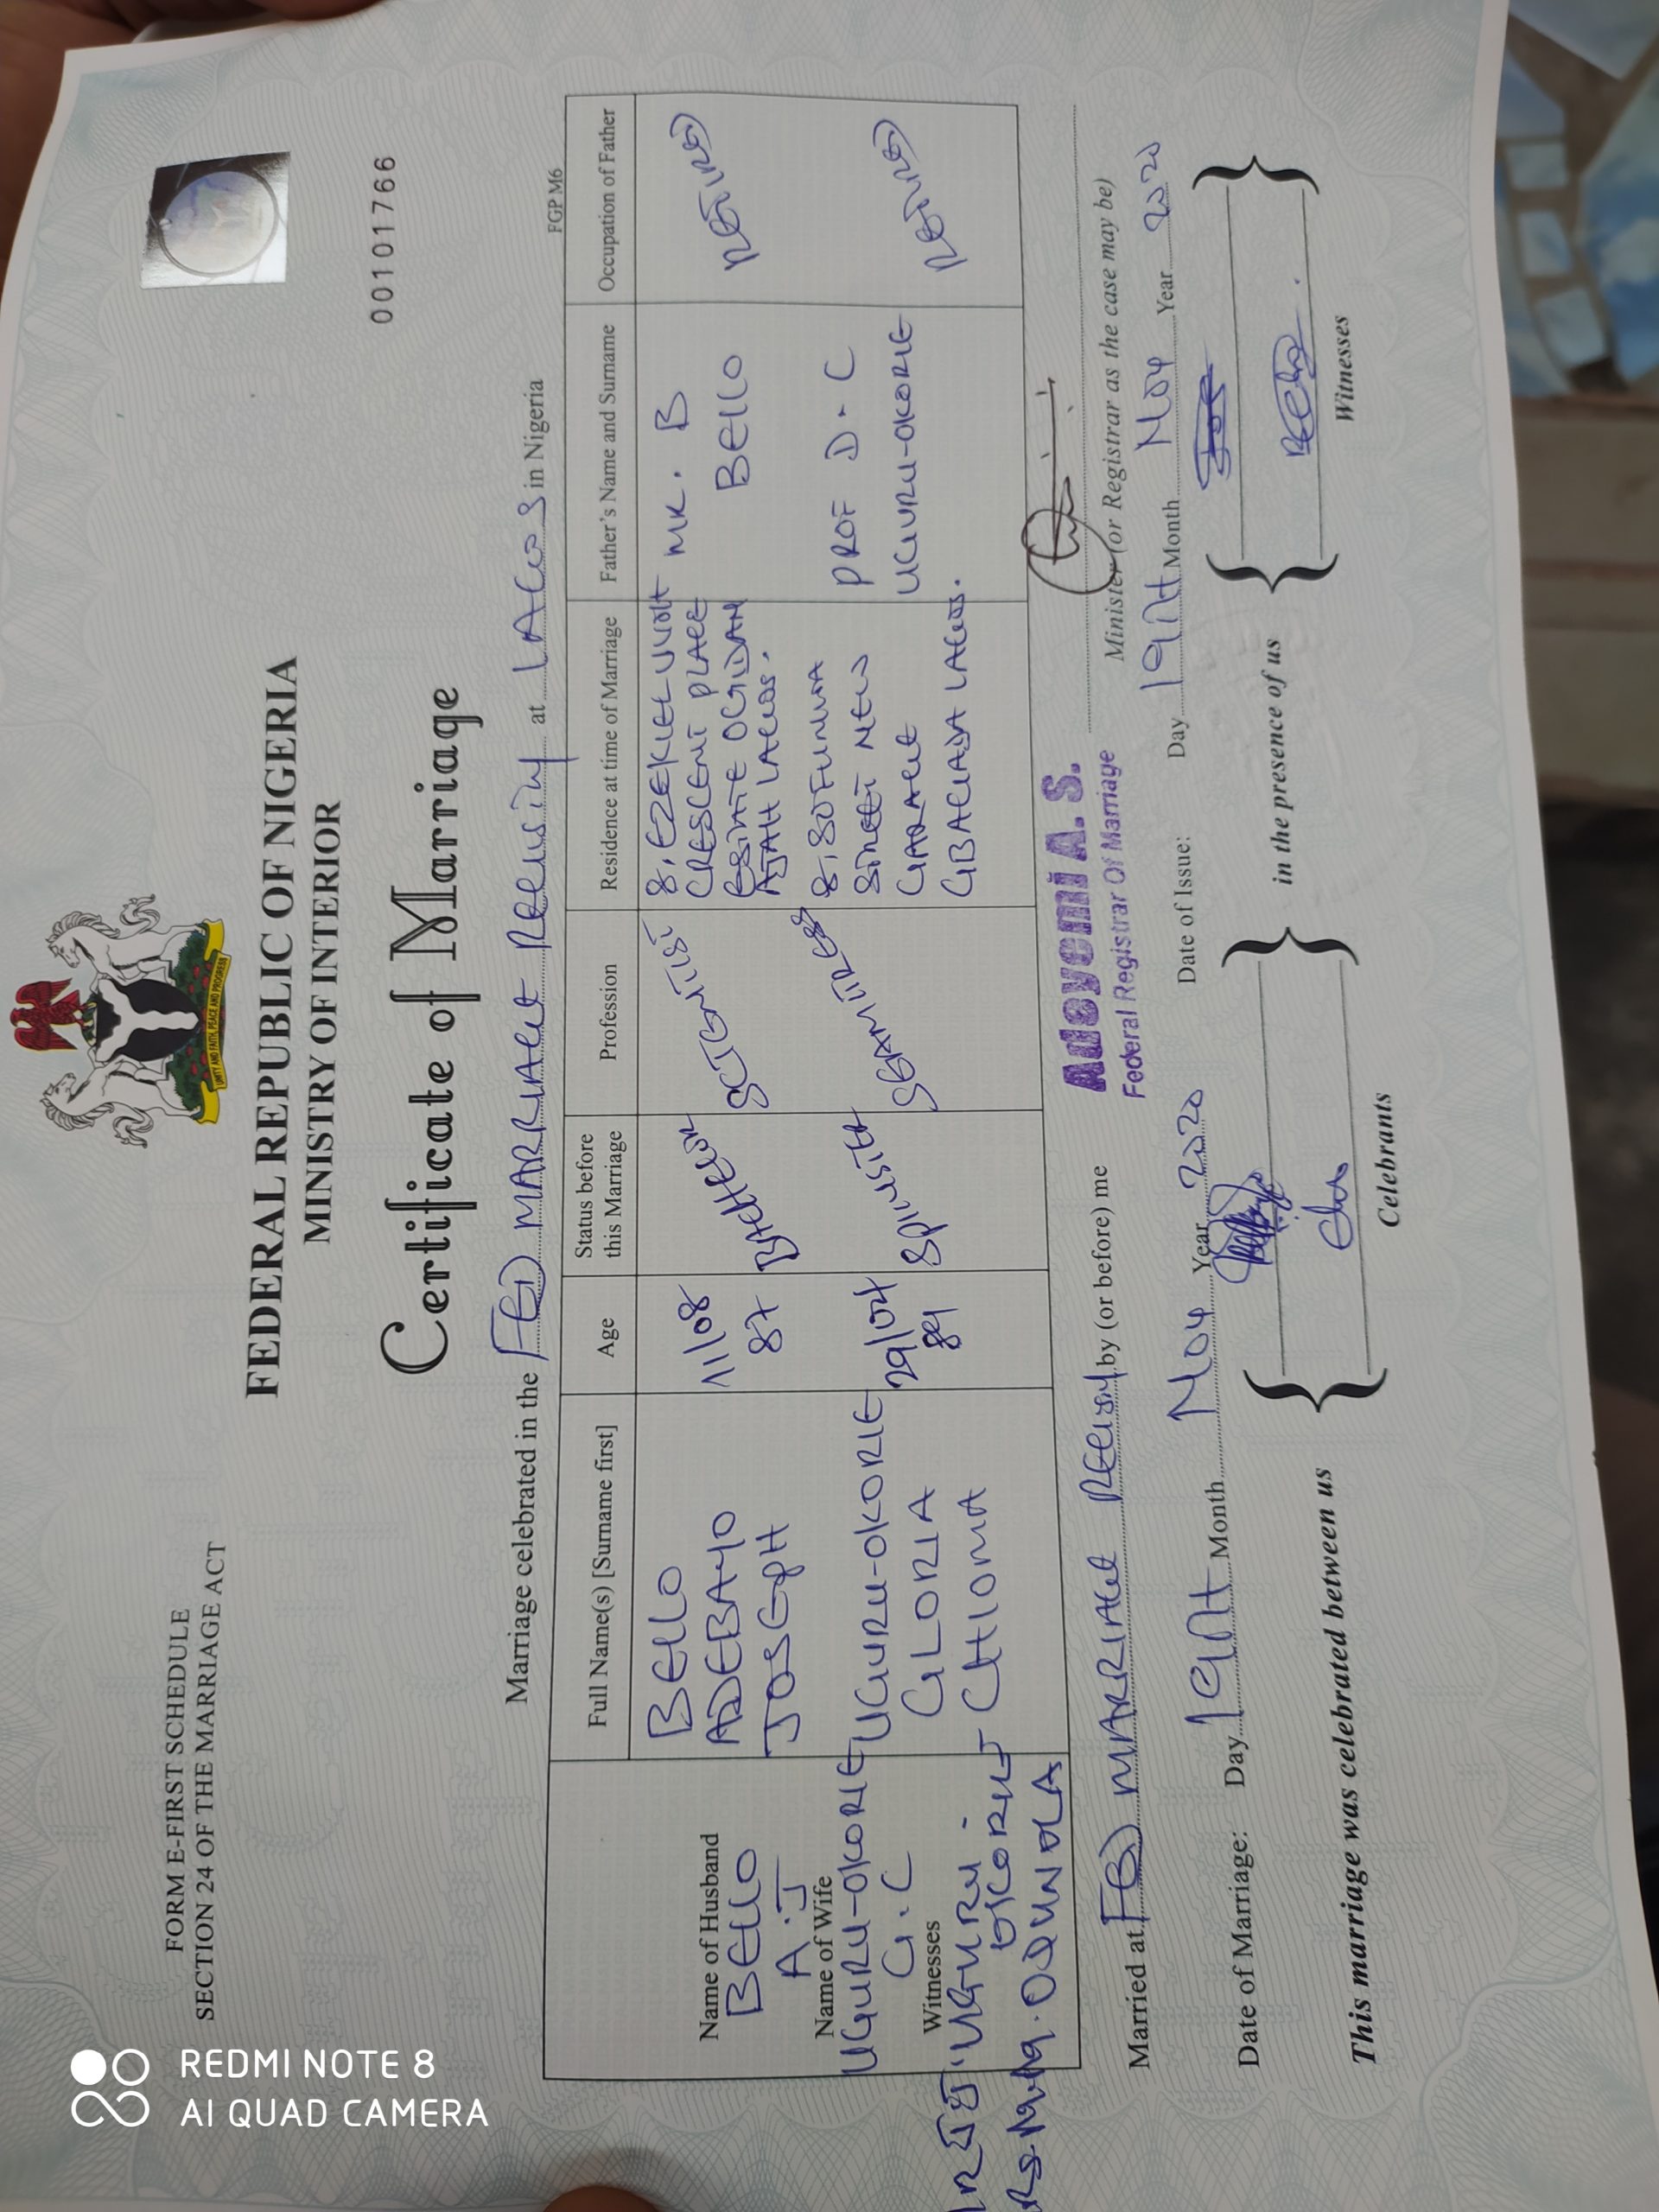 FORM E-FIRST SCHEDULE
SECTION 24 OF THE MARRIAGE ACT
UNITY AND FAITH, PEACE AND PROGRESS
FEDERAL REPUBLIC OF NIGERIA
MINISTRY OF INTERIOR
00101766
Certificate of Marriage
Marriage celebrated in the FED MARRIAGE REGISTRY at LAGOS in Nigeria
FGP M6
Full Name(s) [Surname first]
Age
Status before
this Marriage
Profession
Residence at time of Marriage
Father's Name and Surname
Occupation of Father
Name of Husband
BELLO
A.J
BELLO
ADEBAYO
JOSEPH
11/08
87
BACHELOR
SCIENTIST
8, EZEKIEL
CRESCENT PLACE
ESTATE OGIDAN
AJAH LAGOS.
MR. B
BELLO
RETIRED
Name of Wife
UGURU-OKORIE
G.C
UGURU-OKORIE
GLORIA
CHIOMA
29/04
89
SPINSTER
SEAMSTRESS
8, SOFUNWA
STREET NEW
GARAGE
GBAGADA LAGOS.
PROF D.C
UGURU-OKORIE
RETIRED
Witnesses
UGURU-
OKORIE
ODUNOLA
Married at FED MARRIAGE REGISTRY by (or before) me
Adeyemi A. S.
Federal Registrar Of Marriage
Minister (or Registrar as the case may be)
Date of Marriage: Day 19TH Month NOV Year 2020
Date of Issue: Day 19TH Month NOV Year 2020
This marriage was celebrated between us
Celebrants
in the presence of us
Witnesses
REDMI NOTE 8
AI QUAD CAMERA